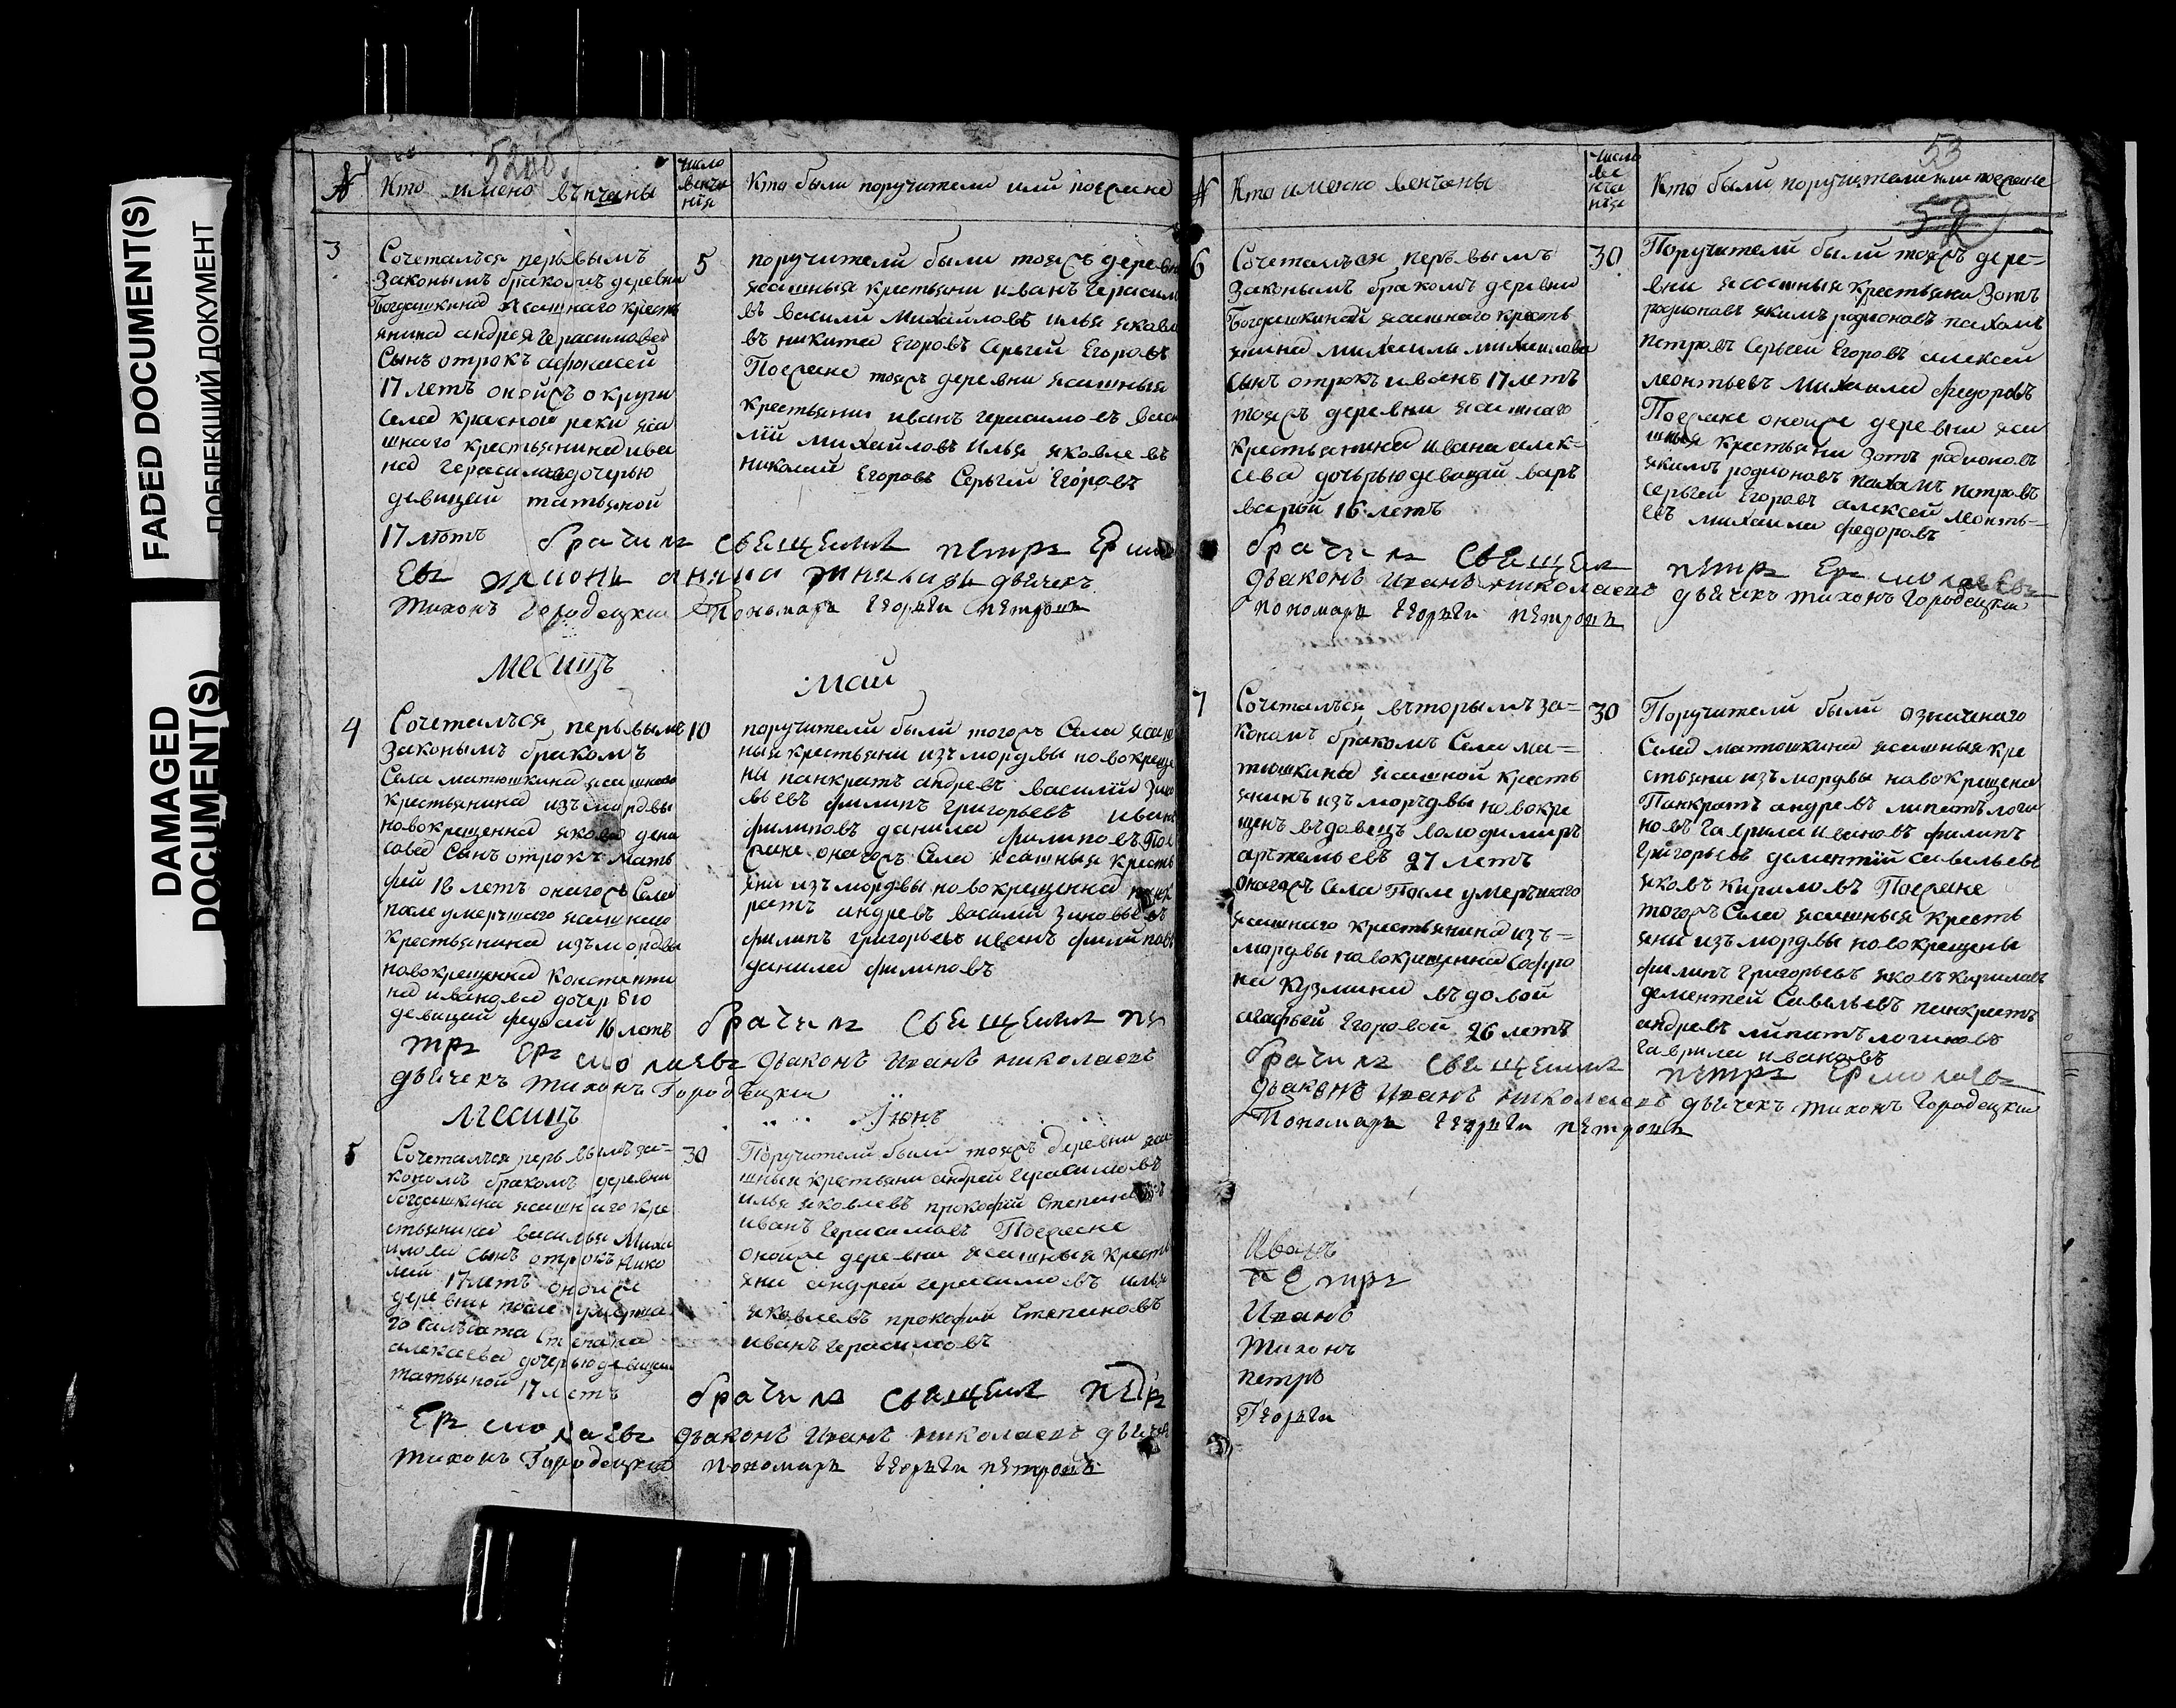 FADED DOCUMENT(S)
DAMAGED
DOCUMENT(S)
52 об.
№
Кто имено въпчаны
число
венча
нїя
Кто были поручители или поезжане
3
Сочетался перьвымъ
законымъ бракомъ деревни
Богдашкина ясашнаго кресть
янина андрея Герасимова
Сынъ отрокъ афонасей
17 летъ онойжъ округи
села красной реки яса
шнаго крестьянина ива
на Герасимова дочерью
девицей татьяной
17 летъ
5
поручители были тояжъ деревни
ясашныя крестьяни иванъ Герасимо
въ васили Михайловъ илья яковле
въ никита Егоровъ Серьгей Егоровъ
Поезжане тояжъ деревни ясашныя
крестьяни иванъ герасимовъ васи
лїй михайловъ Илья яковлевъ
николай Егоровъ Серьгей Егоровъ
брачилъ свещеникъ петръ Ермола
евъ дьячекъ
тихонъ Городецкий Пономарь Георьги петровъ
месицъ май
4
Сочетался перьвымъ
законымъ бракомъ
Села матюшкина ясашнаго
крестьянина изъ мордвы
новокрещенна якова дени
сова Сынъ отрокъ мать
фей 18 летъ онагожъ Села
после умерьшаго ясашнаго
крестьянина изъ мордвы
новокрещенна констенти
на иванова дочерью
девицей 16 летъ
10
поручители были тогожъ Села ясаш
ныя крестьяни изъ мордвы новокреще
ны панкратъ андревъ василий зино
вьевъ филипъ григорьевъ иванъ
филиповъ данила филиповъ Пое
зжане онагожъ Села ясашныя кресть
яни изъ мордвы новокрещенна панк
ратъ андревъ василий зиновьевъ
филипъ григорьевъ иванъ филиповъ
данила филиповъ
брачилъ свещеникъ пе
тръ Ермолаевъ дьяконъ Иванъ николаевъ
дьячекъ тихонъ Городецкий
месицъ Їюнь
5
Сочетался перьвымъ за-
кономъ бракомъ деревни
богдашкина ясашнаго кре
стьянина василья Миха
илова сынъ отрокъ нико
лай 17 летъ онойже
деревни после умерша
го салдата Степана
алексеева дочерью девицей
татьяной 17 летъ
30
Поручители были тояжъ деревни яса
шныя крестьяни андрей Герасимовъ
илья яковлевъ прокофий Степановъ
иванъ Герасимовъ Поезжане
онойже деревни ясашныя кресть
яни андрей герасимовъ илья
яковлевъ прокофий Степановъ
иванъ Герасимовъ
брачилъ свещеникъ петръ
Ермолаевъ дьяконъ Иванъ николаевъ дьячекъ
тихонъ Городецкий пономарь Георьги петровъ
53
52
№
Кто именно венчаны
число
ве
нча
нїя
Кто были поручители или поезжане
6
Сочетался перьвымъ
законымъ бракомъ деревни
Богдашкиной ясашнаго кресть
янина михаила михаилова
сынъ отрокъ иванъ 17 летъ
тояжъ деревни ясашнаго
крестьянина ивана алек-
сева дочерью девицей варъ
варой 16 летъ
30
Поручители были тояжъ дере-
вни ясашныя крестьяни Зотъ
родионовъ якимъ родионовъ пахомъ
петровъ Серьгей Егоровъ алексей
леонтьевъ михаила федоровъ
Поезжане онойже деревни яса
шныя крестьяни зотъ родионовъ
якимъ родионовъ пахомъ петровъ
серьгей Егоровъ алексей леонть-
евъ михаила федоровъ
брачилъ свещеникъ петръ Ермолаевъ
дьяконъ Иванъ николаевъ дьячекъ тихонъ Городецкий
пономарь Георьги петровъ
7
Сочетался въторымъ за-
кономъ бракомъ Села ма-
тюшкина ясашной кресть
янинъ изъ моръдвы новокре
щенъ въдовецъ володимиръ
артемьевъ 27 летъ
онагожъ Села после умеръшаго
ясашнаго крестьянина изъ-
мордвы новокрещенна Софро
на Кузмина въдовой
агафьей Егоровой 26 летъ
30
Поручители были означенаго
Села матюшкина ясашныя кре
стьяни изъ мордвы новокрещена
Панкратъ андревъ липатъ логи
новъ гаврила ивановъ филипъ
григорьевъ дементїй савельевъ
яковъ кириловъ Поезжане
тогожъ Села ясашныя кресть
яни изъ мордвы новокрещены
филипъ григорьевъ яковъ кириловъ
дементей Савельевъ панкратъ
андревъ липатъ логиновъ
гаврила ивановъ
брачилъ свещеникъ петръ Ермолаевъ
дьяконъ Иванъ николаевъ дьячекъ тихонъ Городецкий
Пономарь Георьги петровъ
Иванъ
петръ
Иванъ
Тихонъ
петръ
Георьги